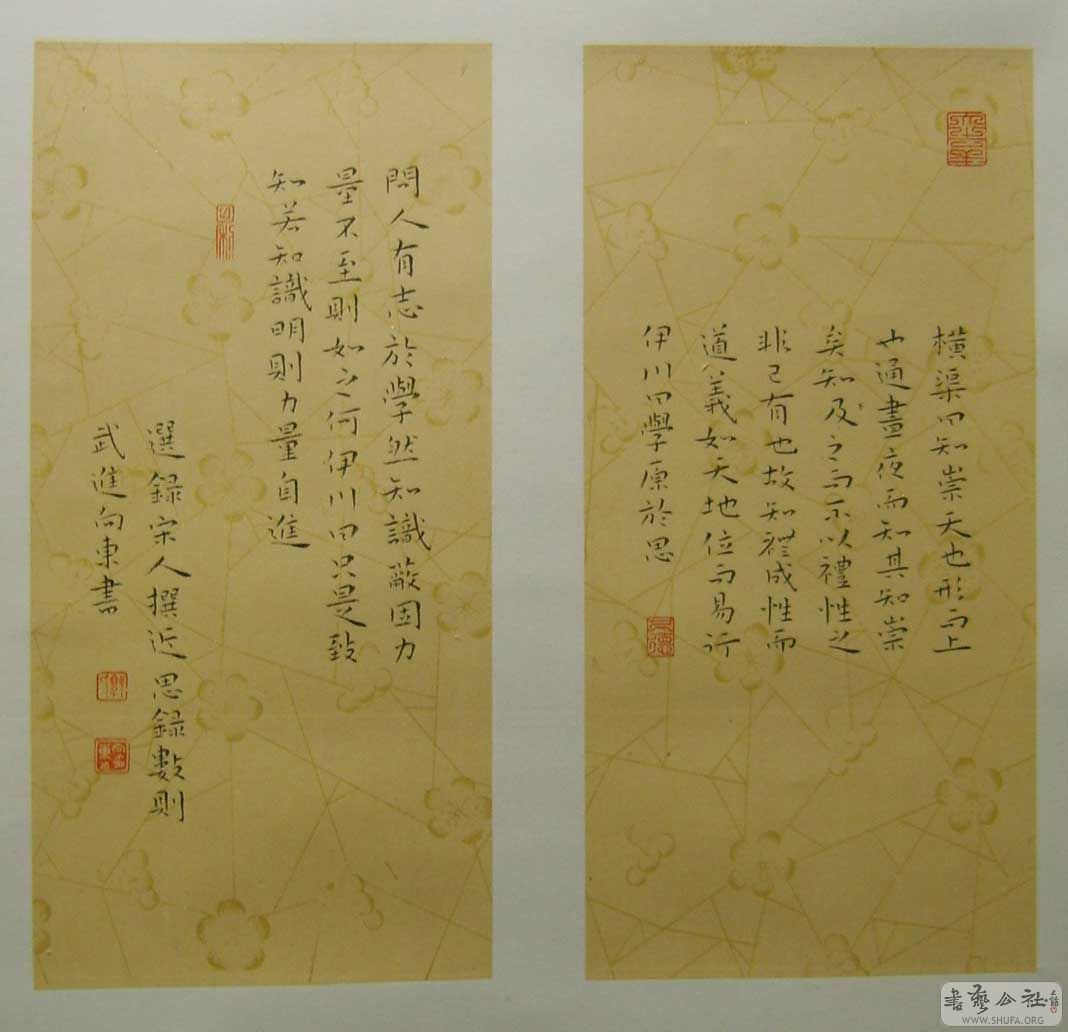 橫渠曰知崇天也形而上
也通晝夜而知其知崇
矣知及之而不以禮性之
非己有也故知禮成性而
道義如天地位而易行
伊川曰學原於思
問人有志於學然知識蔽固力
量不至則如之何伊川曰只是致
知若知識明則力量自進
選錄宋人撰近思錄數則
武進向東書
書藝公社
WWW.SHUFA.ORG